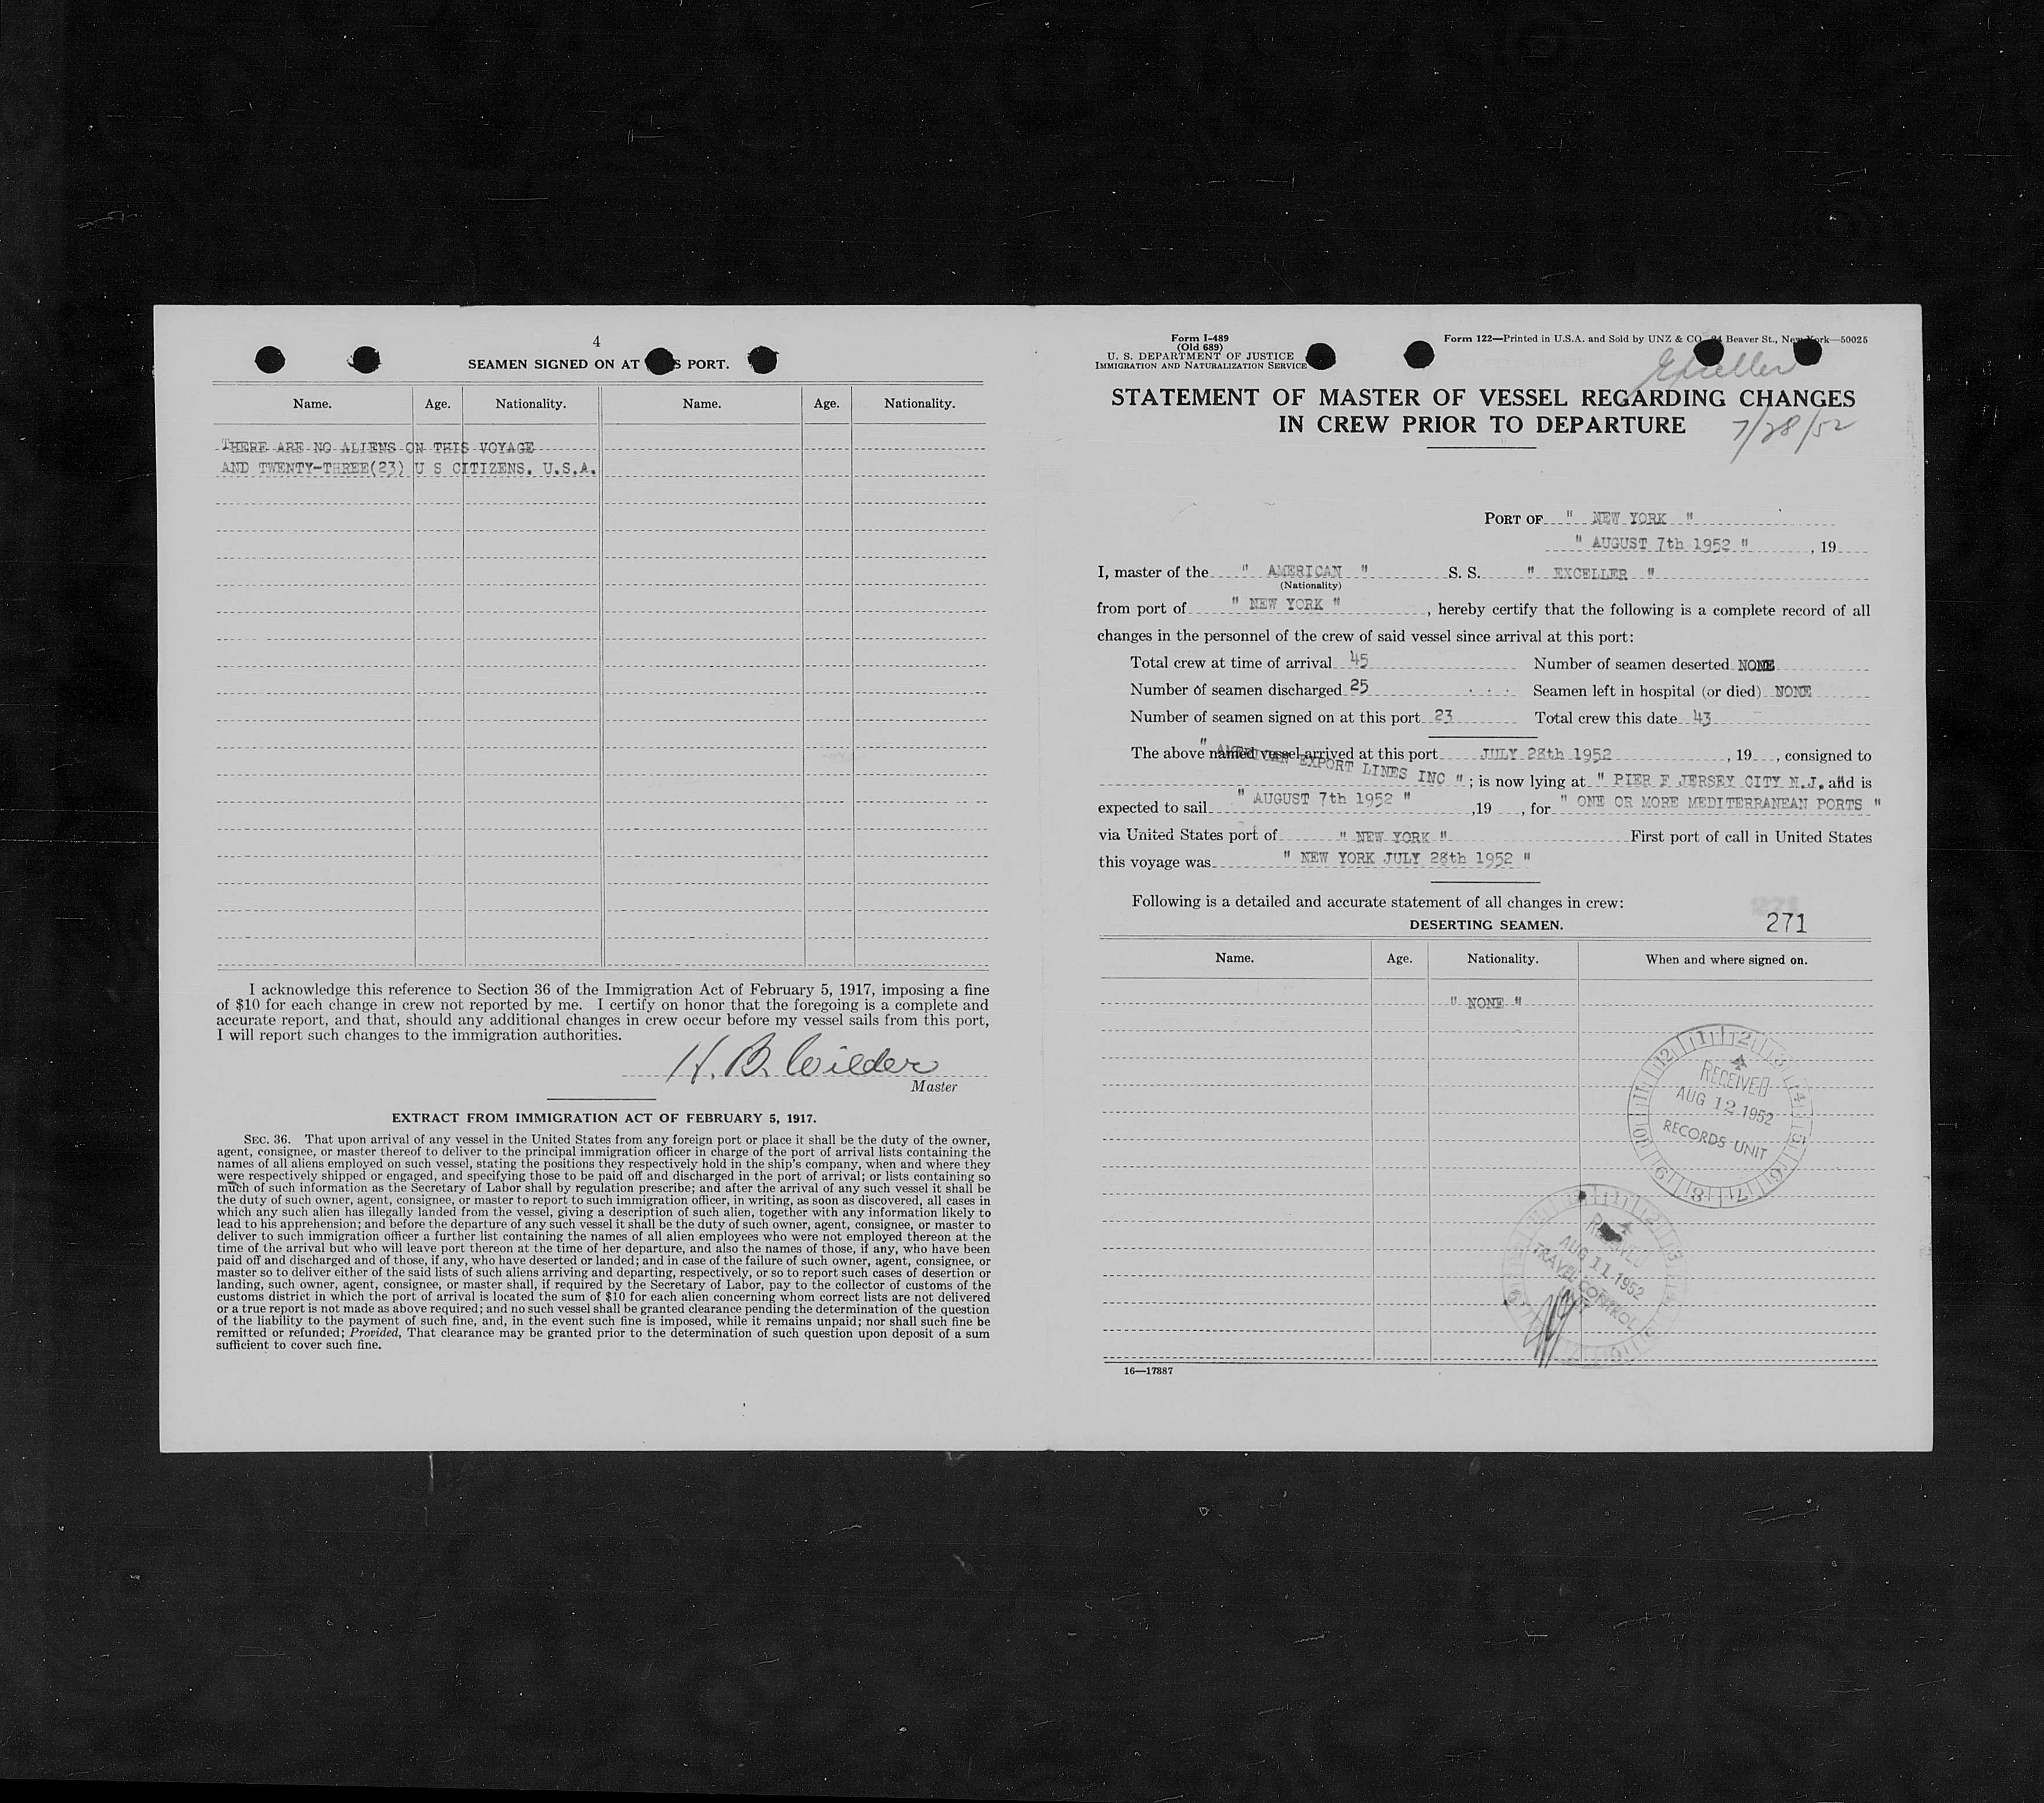 4
SEAMEN SIGNED ON AT S PORT.
Name. Age. Nationality. Name. Age. Nationality.
THERE ARE NO ALIENS ON THIS VOYAGE
AND TWENTY-THREE(23) U S CITIZENS. U.S.A.
I acknowledge this reference to Section 36 of the Immigration Act of February 5, 1917, imposing a fine
of $10 for each change in crew not reported by me. I certify on honor that the foregoing is a complete and
accurate report, and that, should any additional changes in crew occur before my vessel sails from this port,
I will report such changes to the immigration authorities.
H. B. Wilder
Master
EXTRACT FROM IMMIGRATION ACT OF FEBRUARY 5, 1917.
SEC. 36. That upon arrival of any vessel in the United States from any foreign port or place it shall be the duty of the owner,
agent, consignee, or master thereof to deliver to the principal immigration officer in charge of the port of arrival lists containing the
names of all aliens employed on such vessel, stating the positions they respectively hold in the ship's company, when and where they
were respectively shipped or engaged, and specifying those to be paid off and discharged in the port of arrival; or lists containing so
much of such information as the Secretary of Labor shall by regulation prescribe; and after the arrival of any such vessel it shall be
the duty of such owner, agent, consignee, or master to report to such immigration officer, in writing, as soon as discovered, all cases in
which any such alien has illegally landed from the vessel, giving a description of such alien, together with any information likely to
lead to his apprehension; and before the departure of any such vessel it shall be the duty of such owner, agent, consignee, or master to
deliver to such immigration officer a further list containing the names of all alien employees who were not employed thereon at the
time of the arrival but who will leave port thereon at the time of her departure, and also the names of those, if any, who have been
paid off and discharged and of those, if any, who have deserted or landed; and in case of the failure of such owner, agent, consignee, or
master so to deliver either of the said lists of such aliens arriving and departing, respectively, or so to report such cases of desertion or
landing, such owner, agent, consignee, or master shall, if required by the Secretary of Labor, pay to the collector of customs of the
customs district in which the port of arrival is located the sum of $10 for each alien concerning whom correct lists are not delivered
or a true report is not made as above required; and no such vessel shall be granted clearance pending the determination of the question
of the liability to the payment of such fine, and, in the event such fine is imposed, while it remains unpaid; nor shall such fine be
remitted or refunded; Provided, That clearance may be granted prior to the determination of such question upon deposit of a sum
sufficient to cover such fine.
Form I-489
(Old 689)
U. S. DEPARTMENT OF JUSTICE
IMMIGRATION AND NATURALIZATION SERVICE
Form 122—Printed in U.S.A. and Sold by UNZ & CO Beaver St., New York—50025
Exceller
STATEMENT OF MASTER OF VESSEL REGARDING CHANGES
IN CREW PRIOR TO DEPARTURE
7/28/52
PORT OF " NEW YORK "
" AUGUST 7th 1952 " , 19
I, master of the " AMERICAN " S. S. " EXCELLER "
(Nationality)
from port of " NEW YORK " , hereby certify that the following is a complete record of all
changes in the personnel of the crew of said vessel since arrival at this port:
Total crew at time of arrival 45 Number of seamen deserted NONE
Number of seamen discharged 25 Seamen left in hospital (or died) NONE
Number of seamen signed on at this port 23 Total crew this date 43
The above named vessel arrived at this port JULY 28th 1952 , 19 , consigned to
" AMERICAN EXPORT LINES INC " ; is now lying at " PIER F JERSEY CITY N.J. and is
expected to sail " AUGUST 7th 1952 " ,19 , for " ONE OR MORE MEDITERRANEAN PORTS "
via United States port of " NEW YORK " First port of call in United States
this voyage was " NEW YORK JULY 28th 1952 "
Following is a detailed and accurate statement of all changes in crew:
271
DESERTING SEAMEN.
Name. Age. Nationality. When and where signed on.
" NONE "
RECEIVED
AUG 12 1952
RECORDS UNIT
RECEIVED
AUG 11 1952
TRAVEL CONTROL
16—17887